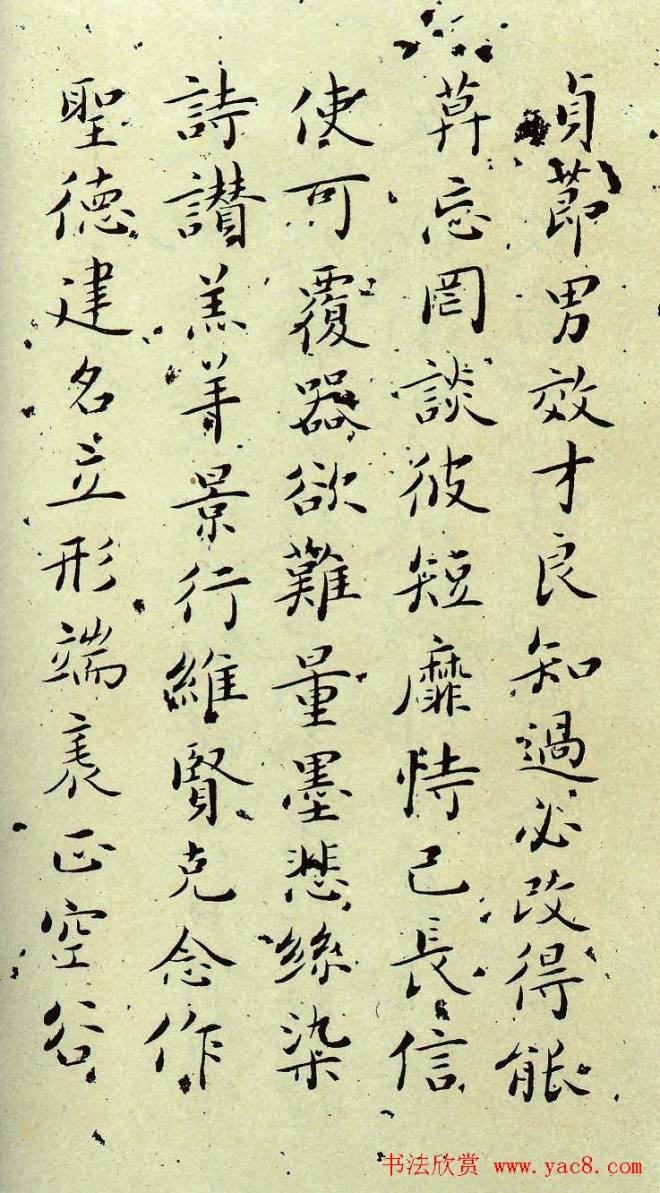 貞節男效才良知過必改得能
莫忘罔談彼短靡恃己長信
使可覆器欲難量墨悲絲染
詩讃羔羊景行維賢克念作
聖德建名立形端表正空谷
书法欣赏 www.yac8.com